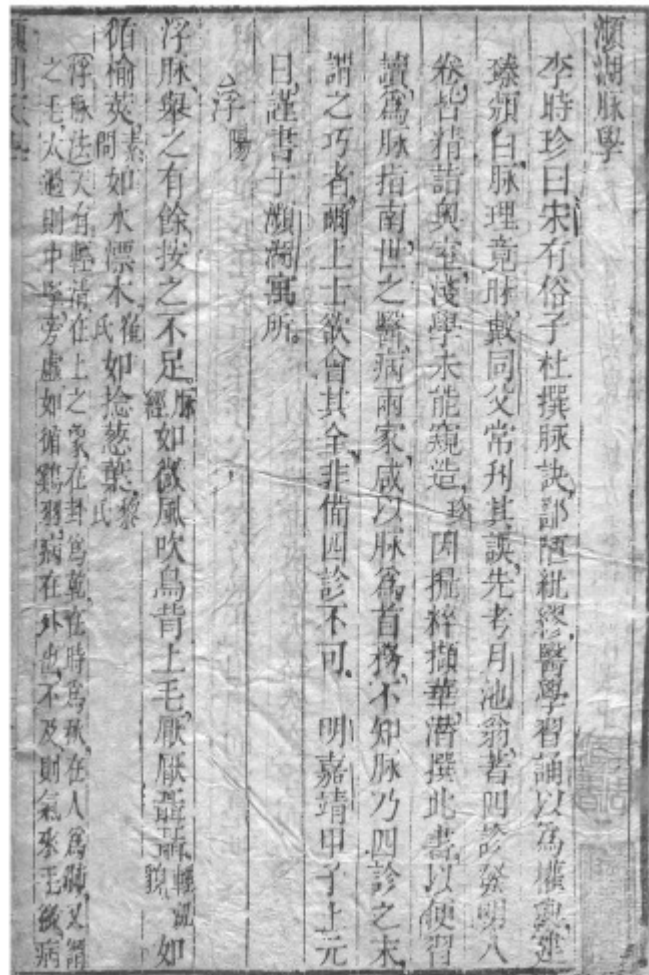 瀕湖脉學
李時珍曰宋有俗子杜撰脉訣鄙陋紕繆醫學習誦以為權輿逮
臻頒白脉理竟昧戴同父常刊其誤先考月池翁著四診發明八
卷皆精詣奥室淺學未能窺造珍因撮粹擷華潛撰此書以便習
讀為脉指南世之醫病兩家咸以脉為首務不知脉乃四診之末
謂之巧者爾上士欲會其全非備四診不可 明嘉靖甲子上元
日謹書于瀕湖寓所
浮 陽
浮脉舉之有餘按之不足脉經如微風吹鳥背上毛厭厭聶聶輕汎貌如
循榆莢素問如水漂木崔氏如捻葱葉黎氏
浮脉法天有輕清在上之象在卦為乾在時為秋在人為肺又謂
之毛太過則中堅旁虛如循雞羽病在外也不及則氣來毛微病